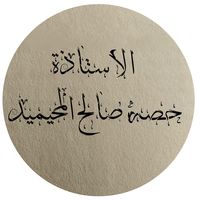 الاستاذة
حصة صالح المحيميد